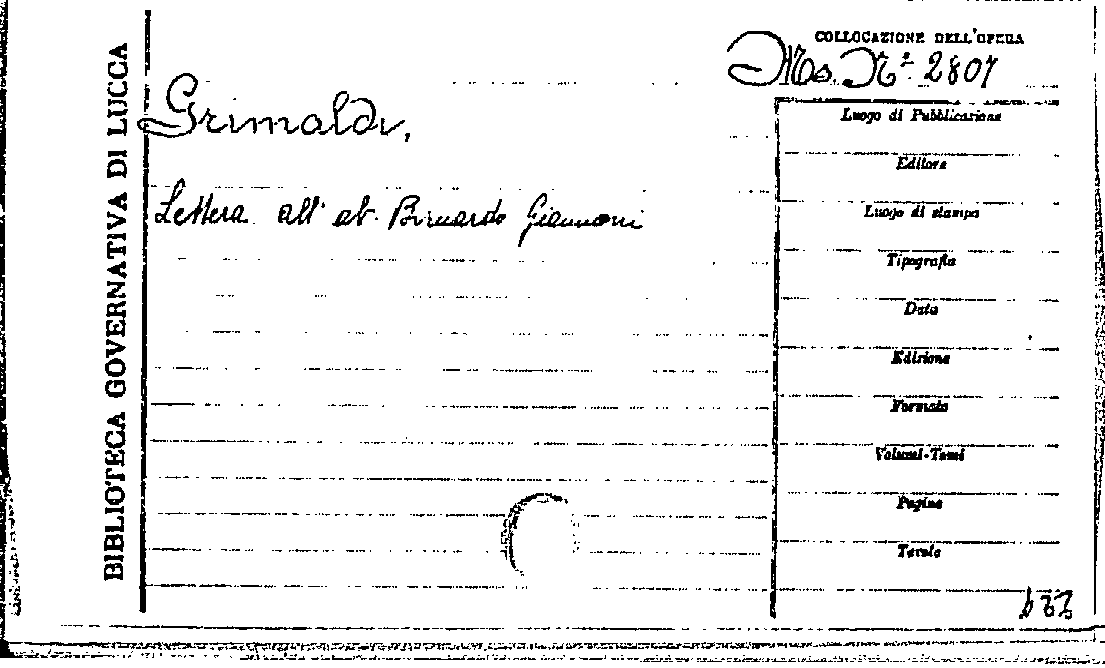 BIBLIOTECA GOVERNATIVA DI LUCCA
COLLOCAZIONE DELL'OPERA
Ms. Nº 2807
Grimaldi,
Lettera all' ab. Bernardo Giannoni
Luogo di Pubblicazione
Editore
Luogo di stampa
Tipografia
Data
Edizione
Formato
Volumi-Tomi
Pagine
Tavole